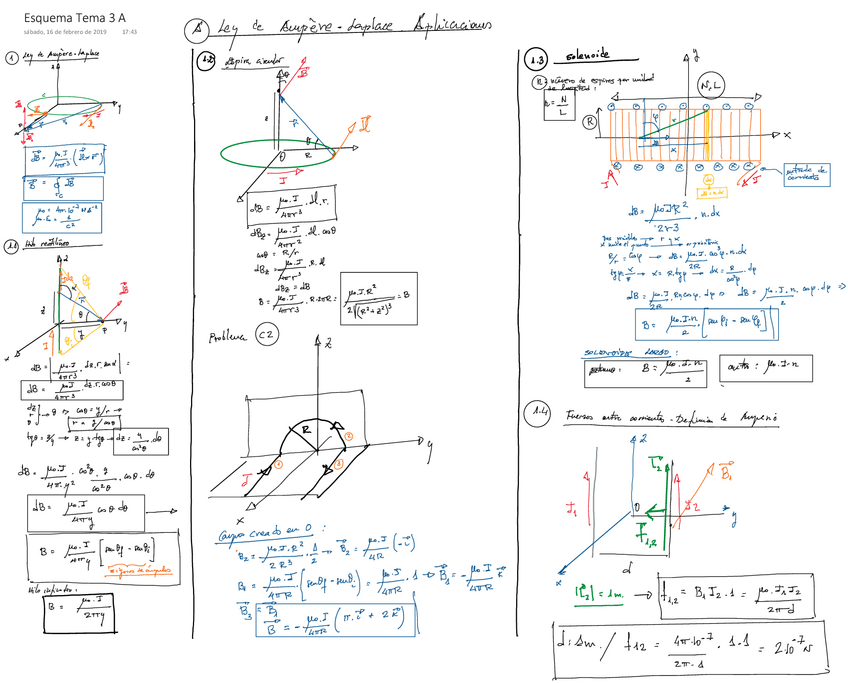 Esquema Tema 3 A
sábado, 16 de febrero de 2019 17:43
A Ley de Ampère - Laplace Aplicaciones
1 Ley de Ampère-Laplace
dB = μ₀·I / 4πr³ (dl × r)
B = ∮c dB
μ₀ = 4π·10⁻⁷ N A⁻²
1.1 Hilo rectilíneo
dB = μ₀·I / 4πr³ · dz·r·cosθ
cosθ = y/r
r = y/cosθ
tgθ = z/y → z = y·tgθ → dz = y / cos²θ · dθ
dB = μ₀·I / 4π·y² · cos²θ · y / cos²θ · cosθ · dθ
dB = μ₀·I / 4πy cosθ dθ
B = μ₀·I / 4πy [senθf - senθi]
signos de ángulos
Hilo infinito:
B = μ₀·I / 2πy
1.2 Espira circular
dB = μ₀·I / 4πr³ · dl·r
dBz = μ₀·I / 4πr² · dl·cosθ
cosθ = R/r
dBz = μ₀·I / 4πr³ · R·dl
dBz = dB
B = μ₀·I / 4πr³ · R·2πR =
μ₀·I·R² / 2√(R²+z²)³ = B
Problema C2
R
z
y
x
I
1
2
3
Campo creado en O:
B₂ = μ₀·I·R² / 2R³ · 1/2 → B₂ = μ₀·I / 4R (-i)
B₁ = μ₀·I / 4πR [senθf - senθi] = μ₀·I / 4πR · 1 → B₁ = - μ₀·I / 4πR k
B₃ = B₁
B = - μ₀·I / 4πR (π·i + 2k)
1.3 Solenoide
n: número de espiras por unidad
de longitud:
n = N / L
N, L
R
y
x
entrada de
corriente
dB = μ₀IR² / 2r³ · n·dx
R/r = cosφ → dB = μ₀·I / 2R cos³φ·n·dx
tgφ = x/R → x = R·tgφ → dx = R / cos²φ · dφ
dB = μ₀·I / 2R · R n cosφ·dφ ⇒ dB = μ₀·I·n / 2 · cosφ·dφ ⇒
B = μ₀·I·n / 2 · [senφf - senφi]
SOLENOIDE LARGO:
extremo: B = μ₀·I·n / 2
centro: μ₀·I·n
1.4 Fuerzas entre corrientes - Definición de Amperio
z
I₁
L₂
B₁
I₂
O
y
f₁,₂
x
d
|L₂| = 1m. → f₁,₂ = B₁ I₂ · 1 = μ₀·I₁I₂ / 2πd
d: 1m. / f₁₂ = 4π·10⁻⁷ / 2π·1 · 1·1 = 2·10⁻⁷ N